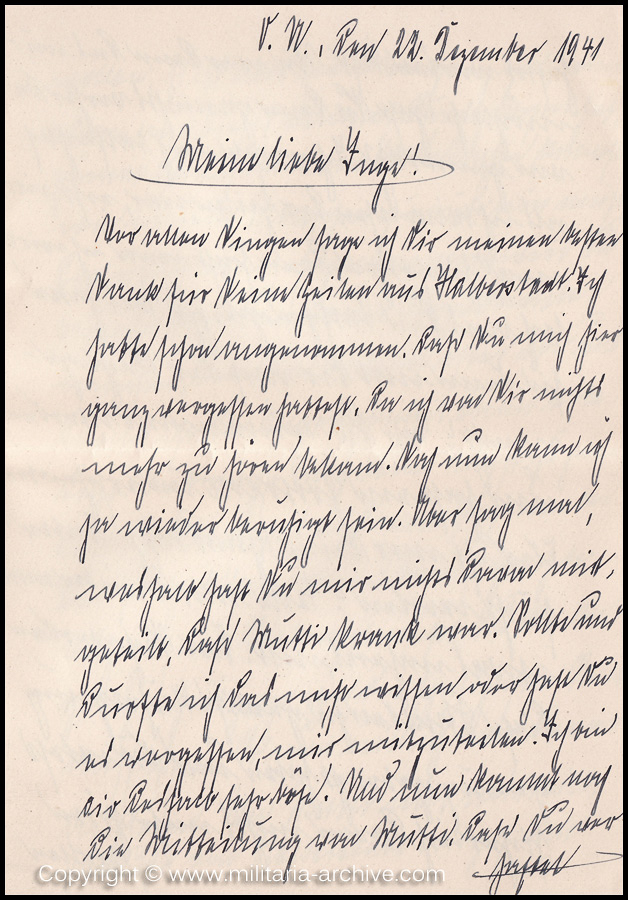 O. U., den 22. Dezember 1941
Meine liebe Inge!
Vor allen Dingen sage ich Dir meinen besten
Dank für Deine Zeilen aus Halberstadt. Ich
hatte schon angenommen, daß Du mich hier
ganz vergessen hattest, da ich von Dir nichts
mehr zu hören bekam. Doch nun kann ich
ja wieder beruhigt sein. Aber sag mal,
weshalb hast Du mir nichts davon mit-
geteilt, daß Mutti krank war. Sollte und
durfte ich das nicht wissen oder hast Du
es vergessen, mir mitzuteilen. Ich bin
dir deshalb sehr böse. Und nun kommt noch
die Mitteilung von Mutti, daß Du ver
Copyright © www.militaria-archive.com